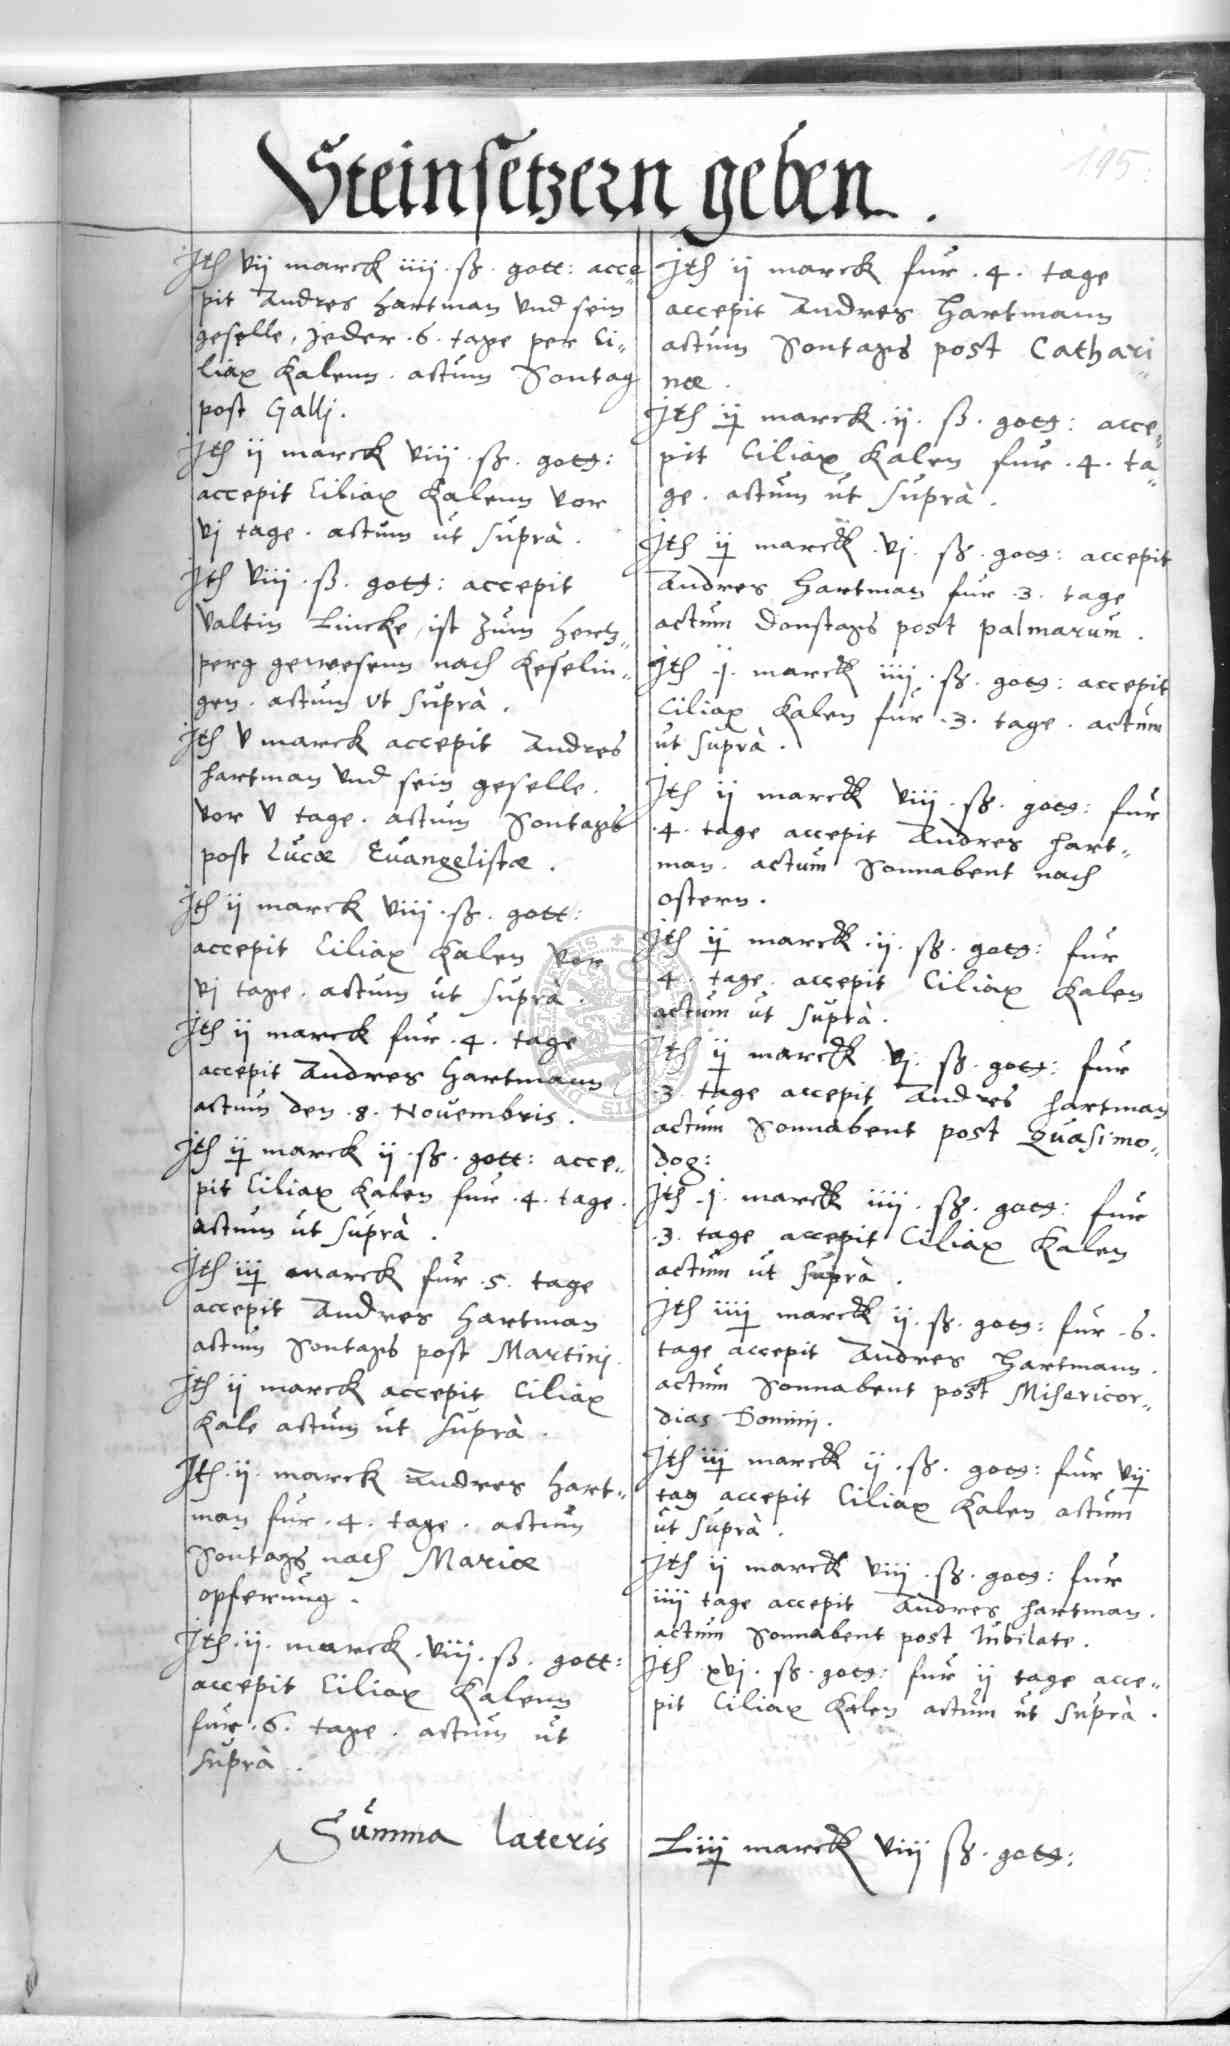 195
Steinsetzern geben.
Jth vij marck iiij. ß. gott: acce„
pit Andres Hartman vnd sein
geselle, jeder .6. tage per Ci„
liax Kalenn. actum Sontag
post Galli.
Jth ij marck viij. ß. gotts:
accepit Ciliax Kalenn vor
vj tage. actum ut suprà.
Jth viij. ß. gotts: accepit
Valtin Lincke, ist zum Hertz„
perg gewesenn nach Keselin„
gen. actum ut suprà.
Jth v marck accepit Andres
Hartman vnd sein geselle.
vor v tage. actum Sontags
post Lucæ Euangelistæ.
Jth ij marck viij. ß. gott:
accepit Ciliax Kalen vor
vj tage. actum ut suprà.
Jth ij marck fur .4. tage
accepit Andres Hartmann
actum den .8. Nouembris.
Jth ij marck ij. ß. gott: acce„
pit Ciliax Kalen fur .4. tage.
actum ut suprà.
Jth iij marck fur .5. tage
accepit Andres Hartman
actum Sontags post Martinj.
Jth ij marck accepit Ciliax
Kale actum ut suprà.
Jth .ij. marck Andres Hart„
man fur .4. tage. actum
Sontags nach Mariæ
opferung.
Jth .ij. marck .viij. ß. gott:
accepit Ciliax Kalenn
fur .6. tage. actum ut
suprà.
Summa lateris
Jth ij marck fur .4. tage
accepit Andres Hartmann
actum Sontags post Cathari„
næ.
Jth ij marck .ij. ß. gots: acce„
pit Ciliax Kalen fur .4. ta„
ge. actum ut suprà.
Jth ij marck .vj. ß. gots: accepit
Andres Hartman fur .3. tage
actum Donstags post palmarum.
Jth .j. marck iiij. ß. gots: accepit
Ciliax Kalen fur .3. tage. actum
ut suprà.
Jth ij marck viij. ß. gots: fur
.4. tage accepit Andres Hart„
man. actum Sonnabent nach
ostern.
Jth ij marck .ij. ß. gots: fur
4. tage. accepit Ciliax Kalen
actum ut suprà.
Jth ij marck vj. ß. gots: fur
.3. tage accepit Andres Hartman
actum Sonnabent post Quasimo„
dog:
Jth .j. marck iiij. ß. gots: fur
.3. tage accepit Ciliax Kalen
actum ut suprà.
Jth iiij marck ij. ß. gots: fur .6.
tage accepit Andres Hartmann.
actum Sonnabent post Misericor„
dias Dominj.
Jth iij marck ij. ß. gots: fur vij
tag accepit Ciliax Kalen actum
ut suprà.
Jth ij marck viij. ß. gots: fur
iiij tage accepit Andres Hartman.
actum Sonnabent post Iubilate.
Jth xvj. ß. gots: fur ij tage acce„
pit Ciliax Kalen actum ut suprà.
Liij marck viij ß. gots: